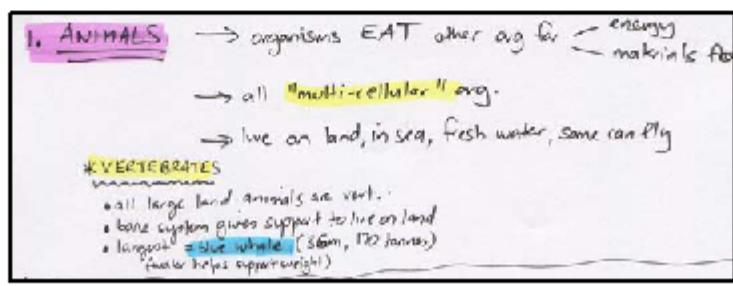 1. ANIMALS → organisms EAT other org for energy
materials
→ all "multi-cellular" org.
→ live on land, in sea, fresh water, some can fly
* VERTEBRATES
• all large land animals are vert.
• bone system gives support to live on land
• largest = blue whale (36m, 170 tonnes)
(water helps support weight)